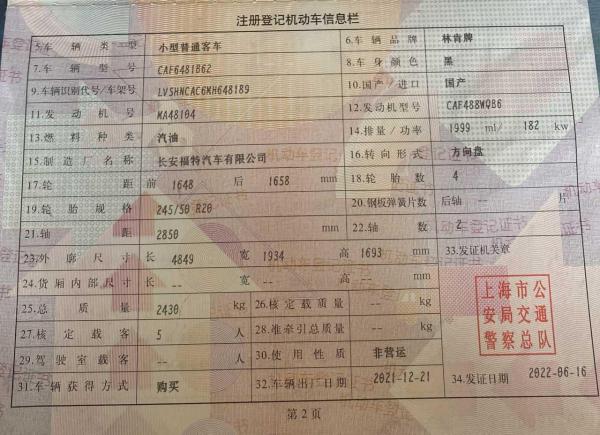 注册登记机动车信息栏
5.车辆类型 小型普通客车 6.车辆品牌 林肯牌
7.车辆型号 CAF6481B62 8.车身颜色 黑
9.车辆识别代号/车架号 LVSHNCAC6MH648189 10.国产/进口 国产
11.发动机号 MA48104 12.发动机型号 CAF488WQB6
13.燃料种类 汽油 14.排量/功率 1999 ml/ 182 kw
15.制造厂名称 长安福特汽车有限公司 16.转向形式 方向盘
17.轮距 前 1648 后 1658 mm 18.轮胎数 4
19.轮胎规格 245/50 R20 20.钢板弹簧片数 后轴 -- 片
21.轴距 2850 mm 22.轴数 2
23.外廓尺寸 长 4849 宽 1934 高 1693 mm 33.发证机关章
24.货厢内部尺寸 长 -- 宽 -- 高 -- mm
25.总质量 2430 kg 26.核定载质量 -- kg
27.核定载客 5 人 28.准牵引总质量 -- kg
29.驾驶室载客 -- 人 30.使用性质 非营运
31.车辆获得方式 购买 32.车辆出厂日期 2021-12-21 34.发证日期 2022-06-16
上海市公
安局交通
警察总队
第2页